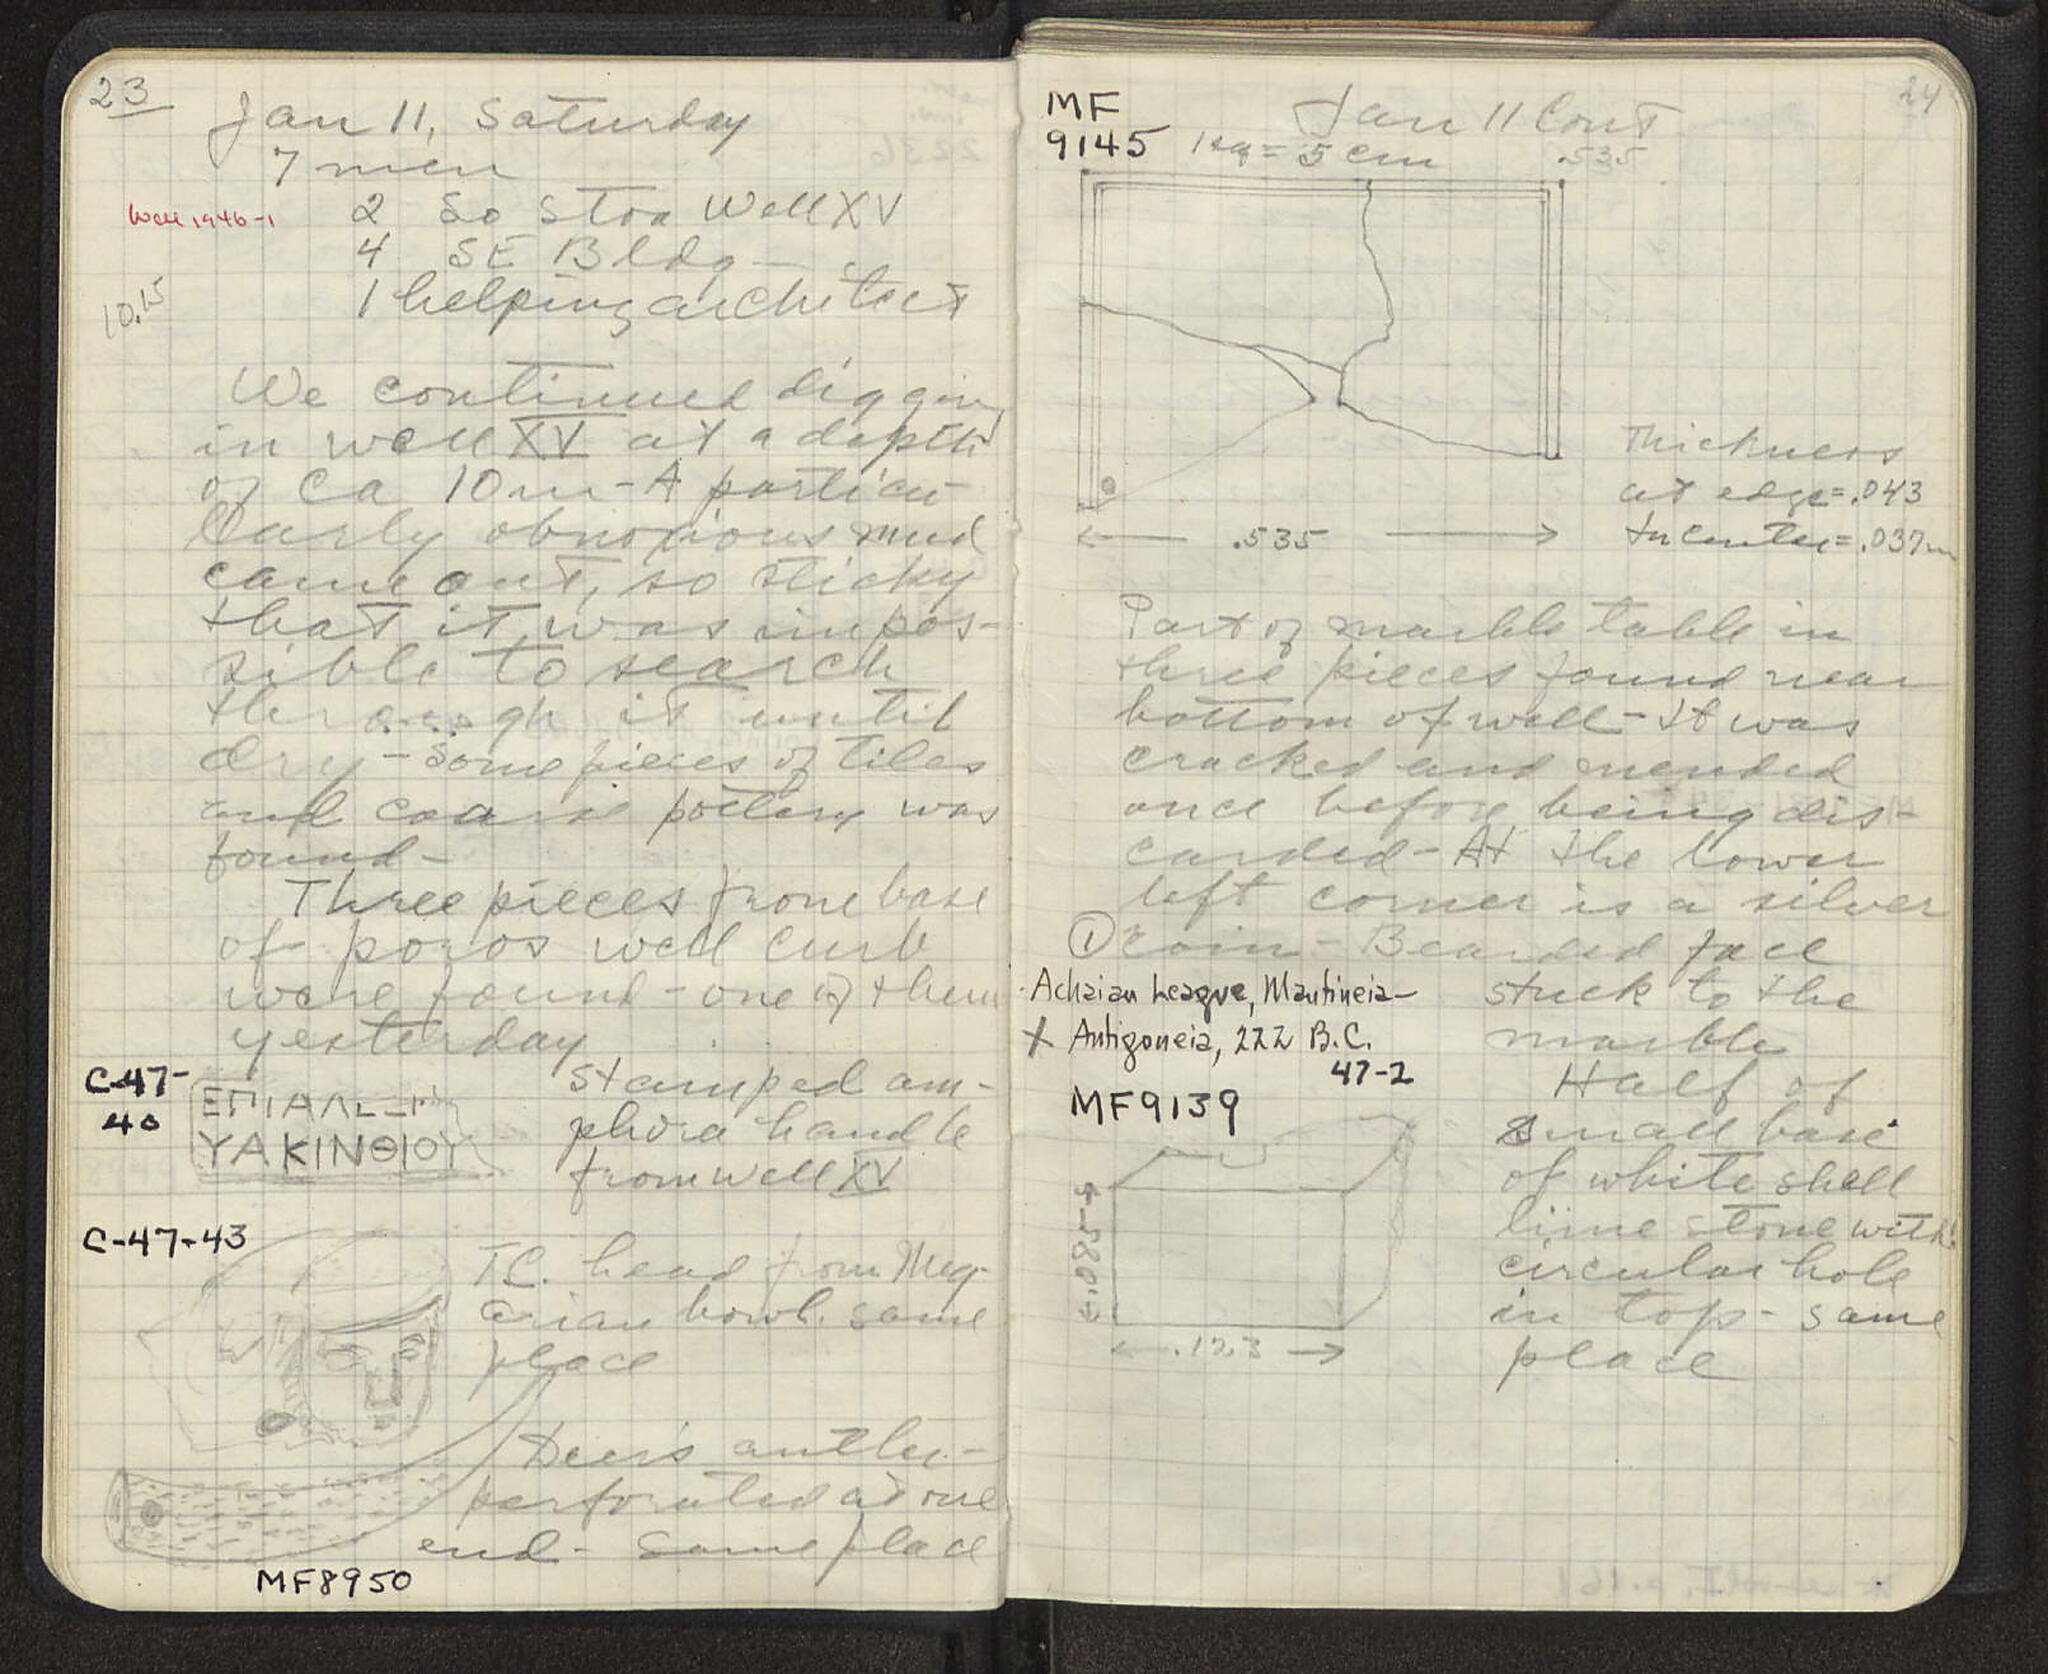 23
Jan 11, Saturday
7 men
Well 1946-1
2 So Stoa Well XV
4 SE Bldg
10.15
1 helping architect
We continued digging
in well XV at a depth
of Ca 10m - A particu-
larly obnoxious mud
came out, so sticky
that it was impos-
sible to search
through it until
dry - Some pieces of tiles
and coarse pottery was
found -
Three pieces from base
of poros well curb
were found - one of them
yesterday
C-47-
40
ΕΠΙΑΛΕ
ΥΑΚΙΝΘΙΟΥ
Stamped am-
phora handle
from well XV
C-47-43
T.C. head from Meg-
arian bowl. same
place
Deer's antler -
perforated at one
end - Same place
MF8950
24
MF
9145
Jan 11 Cont
1 sq = 5 cm
.535
Thickness
at edge = .043
In center = .037m
.535
Part of marble table in
three pieces found near
bottom of well - It was
cracked and mended
once before being dis-
carded - At the lower
left corner is a silver
① coin - Bearded face
stuck to the
marble
Achaian League, Mantineia-
X Antigoneia, 222 B.C.
47-2
MF9139
Half of
small base
of white shell
lime stone with
circular hole
in top - same
place
.085
.123